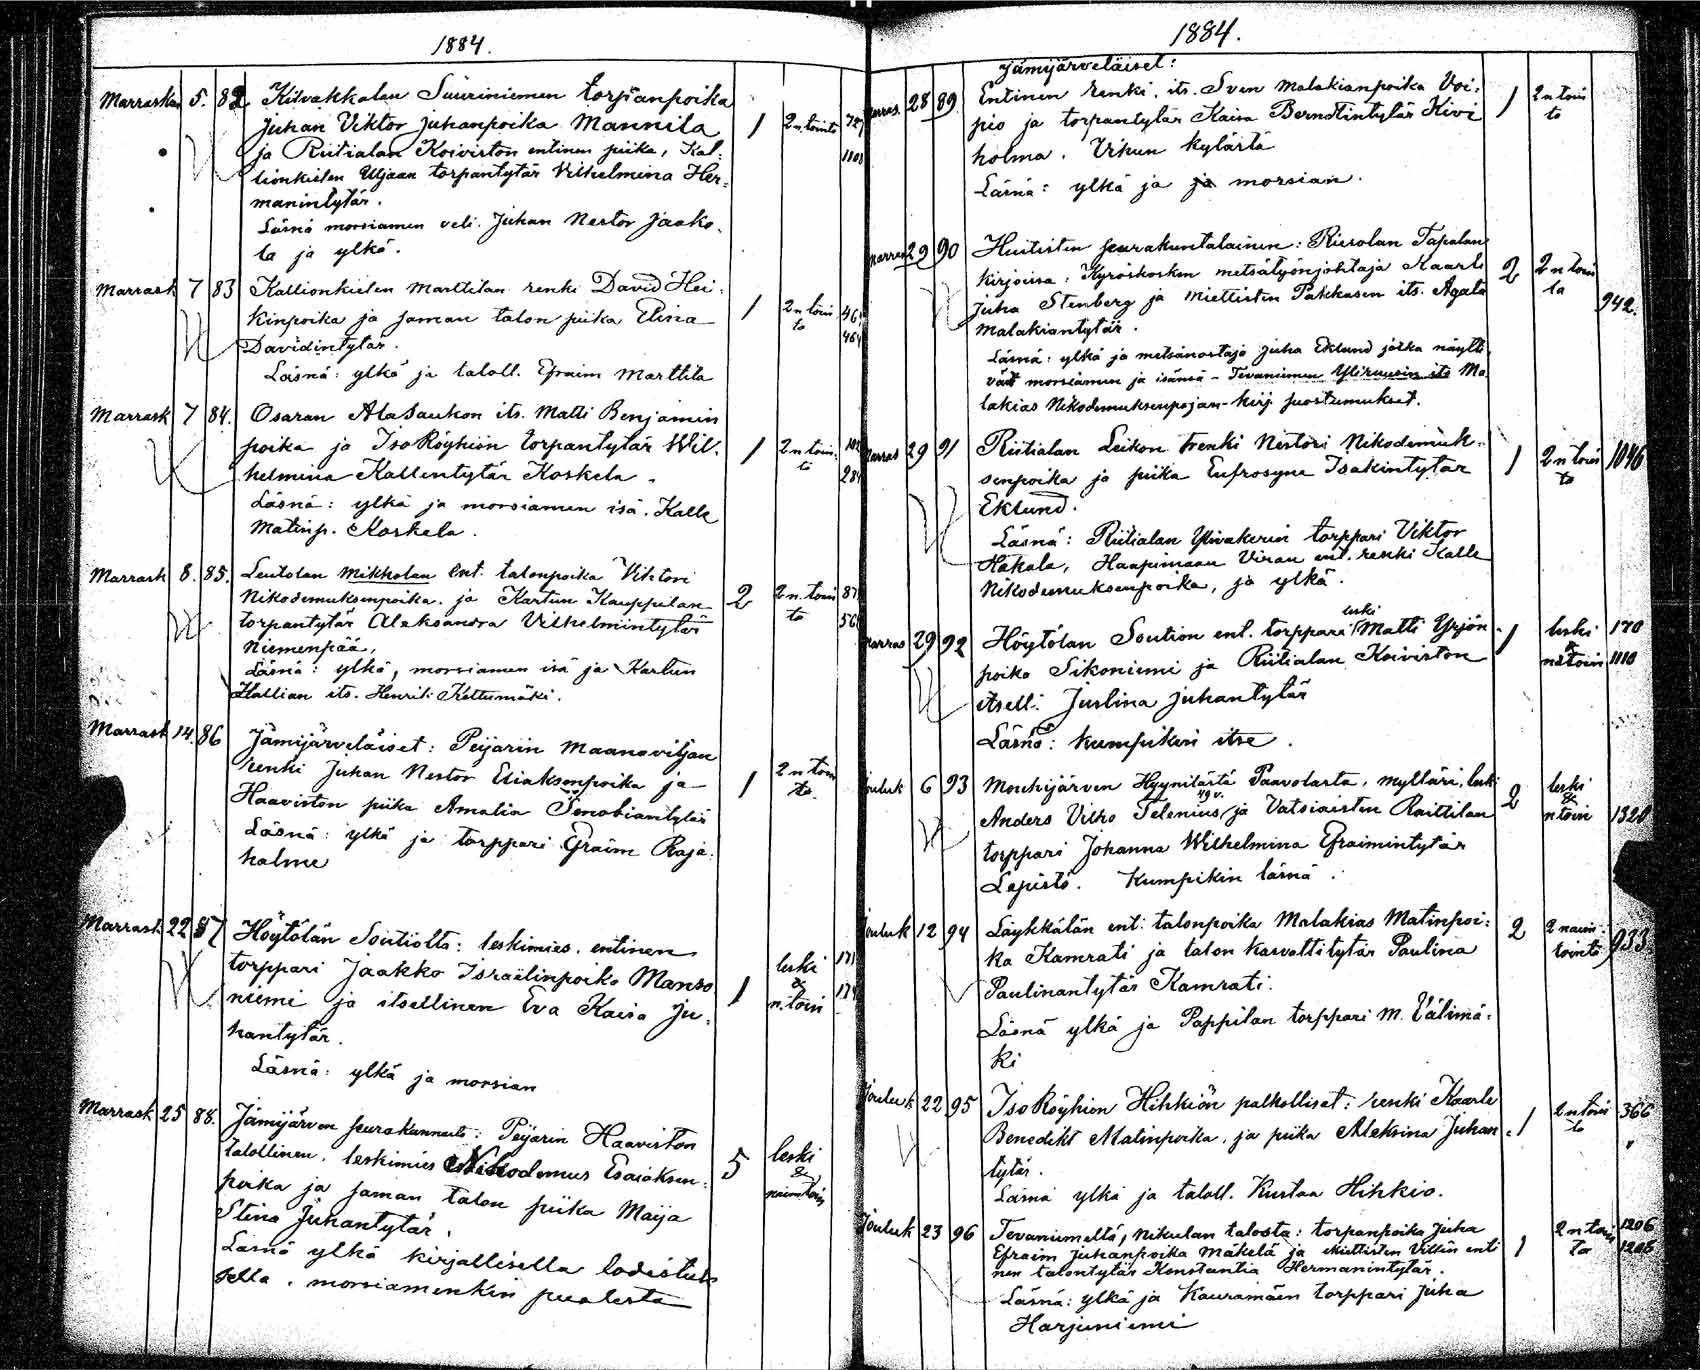 1884.
Marrask. 5. 82. Kilvakkalan Suuriniemen torpanpoika
Juhan Viktor Juhanpoika Mannila 1 2 n. tointo
ja Riitialan Koiviston entinen piika, Kal-
lionkielen Uljaan torpantytär Vilhelmina Her-
manintytär.
Läsnä morsiamen veli Juhan Nestor Jaako-
la ja ylkä.
Marrask 7 83 Kallionkielen Marttilan renki David Hei-
kinpoika ja saman talon piika Elina 1 2 n toin 461
to 461
Davidintytär.
Läsnä: ylkä ja taloll. Efraim Marttila
Marrask 7 84. Osaran AlaSaukon its. Matti Benjamin
poika ja IsoRöyhiön torpantytär Wil- 1 2 n toin-
to 284
helmina Kallentytär Koskela.
Läsnä: ylkä ja morsiamen isä. Kalle
Matinp. Koskela.
Marrask 8. 85. Leutolan Mikkolan ent. talonpoika Viktori
Nikodemuksenpoika. ja Kartun Kauppilan 2 2 n. toin 87
to
torpantytär Aleksandra Vilhelmiintytär
Niemenpää,
Läsnä: ylkä, morsiamen isä ja Kartun
Hallian its. Henrik Kettumäki.
Marrask 14. 86 Jämijärveläiset: Peijarin Maanaviljan
renki Juhan Nestor Esiaksenpoika ja 1 2 n toin
to.
Haaviston piika Amalia Senobiantytär
Läsnä: ylkä ja torppari Efraim Raja-
halme
Marrask 22 87 Höytölän Soutiolta: leskimies. entinen
torppari Jaakko Israelinpoika Manso- leski 171
niemi ja itsellinen Eva Kaisa Ju- 1 & n. toin 174
hantytär.
Läsnä: ylkä ja morsian
Marrask 25 88. Jämijärven seurakunnasta: Peijarin Haaviston
talollinen. leskimies Nikodemus Esaiaksen- 5 leski
&
poika ja saman talon piika Maija naimatoin
Stina Juhantytär.
Läsnä ylkä kirjallisella todistuk-
sella. morsiamenkin puolesta
1884.
Jämijärveläiset:
Marras. 28 89. Entinen renki, its. Sven Malakianpoika Voi- 1 2 n toin
to
pio ja torpantytär Kaisa Berndtintytär Kivi
holma. Vihun kylästä
Läsnä: ylkä ja ja morsian.
Marras 29 90 Huitisten seurakuntalainen: Riesolan Tapalan
kirjoissa, Kyröskosken metsätyönjohtaja Kaarle 2 2 n toin
ta
Juha Stenberg ja Miettisten Pakkasen its. Agata 942.
Malakiantytär.
Läsnä: ylkä ja metsänostaja Juha Eklund jotka näytti-
vät morsiamen ja isänsä - Tevaniemen Yliruusin its Ma-
lakias Nikodemuksenpojan - kirj. suostumukset.
Marras 29 91 Riitialan Leikon renki Nestori Nikodemuk- 1 2 n toin 1046
to
senpoika ja piika Eufrosyne Isakintytär
Eklund.
Läsnä: Riitialan Ylivakerin torppari Viktor
Hakala, Haapimaan Viran ent. renki Kalle
Nikodemuksenpoika, ja ylkä.
Marras 29 92 Höytölän Soution ent. torppari leski Matti Yrjön- 1 leski 170
&
poika Sikoniemi ja Riitialan Koiviston n:toin 1110
itsell. Justina Juhantytär
Läsnä: kumpikin itse.
Jouluk 6 93 Mouhijärven Hyynilästä Paavolasta, mylläri, leski 2 leski
&
Anders Vilho Telenius 49 v. ja Vatsiaisten Raittilan n toin 1320
torppari Johanna Wilhelmina Efraimintytär
Lepistö. Kumpikin läsnä.
Jouluk 12 94 Läykkälän ent: talonpoika Malakias Matinpoi- 2 2 naim-
tointa 933
ka Kamrati ja talon kasvattitytär Paulina
Paulinantytär Kamrati.
Läsnä ylkä ja Pappilan torppari M. Välimä-
ki
Jouluk 22 95 IsoRöyhiön Hihkiön palkolliset: renki Kaarle 2 n toin 366
Benedikt Matinpoika, ja piika Aleksina Juhan- 1 to "
tytär.
Läsnä ylkä ja taloll. Kustaa Hihkio.
Jouluk 23 96 Tevaniemeltä, Nikulan talosta: torpanpoika Juha 2 n toin 1206
Efraim Juhanpoika Mäkelä ja Miettisten Villin enti 1 ta 1206
nen talontytär Konstantia Hermanintytär.
Läsnä: ylkä ja Kauramäen torppari Juha
Harjuniemi